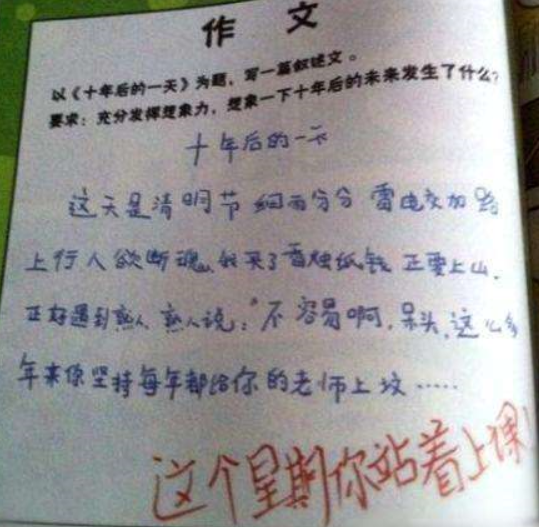 作 文
以《十年后的一天》为题，写一篇叙述文。
要求：充分发挥想象力，想象一下十年后的未来发生了什么？
十年后的一天
这天是清明节 细雨分分 雷电交加 路
上行人欲断魂，我买了香烛纸钱 正要上山，
正好遇到熟人，熟人说：“不容易啊，呆头，这么多
年来你坚持每年都给你的老师上坟……
这个星期你站着上课！